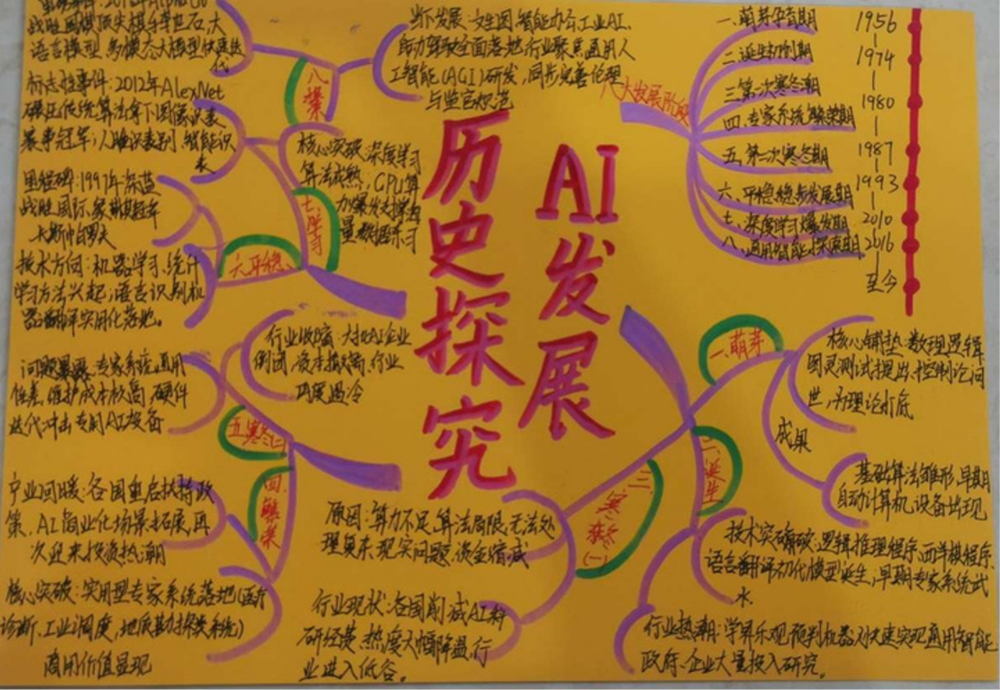 AI发展
历史探究
八大发展阶段
一.萌芽孕育期
二.诞生初创期
三.第一次寒冬期
四.专家系统繁荣期
五.第二次寒冬期
六.平稳稳步发展期
七.深度学习爆发期
八.通用智能探索期
1956
1974
1980
1987
1993
2010
2016
至今
一.萌芽
核心铺垫:数理逻辑
图灵测试提出、控制论问
世,为理论打底
成果
基础算法雏形,早期
自动计算机、设备出现
二.诞生
技术突破:逻辑推理程序、西洋棋程序、
语言翻译初代模型诞生,早期专家系统试
水
行业热潮:学界乐观预判机器人快速实现通用智能
政府、企业大量投入研究。
三.寒冬(一)
原因:算力不足、算法局限,无法处
理复杂现实问题,资金缩减
行业现状:各国削减AI科
研经费,热度大幅降温,行
业进入低谷。
四.繁荣
产业回暖:各国重启扶持政
策,AI商业化场景拓展,再
次迎来投资热潮
核心突破:实用型专家系统落地(医疗
诊断、工业调度、地质勘探类系统)
商用价值显现
五寒冬(二)
行业收缩:大批AI企业
倒闭,资本撤离,行业
问题暴露:专家系统通用
性差、维护成本极高,硬件
迭代冲击专用AI设备
六平稳
里程碑:1997年深蓝
战胜国际象棋冠军
卡斯帕罗夫
技术方向:机器学习、统计
学习方法兴起;语言识别、机
器翻译实用化落地。
七.学习
核心突破:深度学习
算法成熟,GPU算
标志性事件:2012年AlexNet
碾压传统算法拿下图像识别
赛事冠军;人脸识别、智能识
八.探索
战胜围棋顶尖棋手李世石,大
语言模型、多模态大模型快速迭
代
断发展:文生图、智能办公、工业AI、
自动驾驶全面落地,行业聚焦通用人
工智能(AGI)研发,同步完善伦理
与监管规范